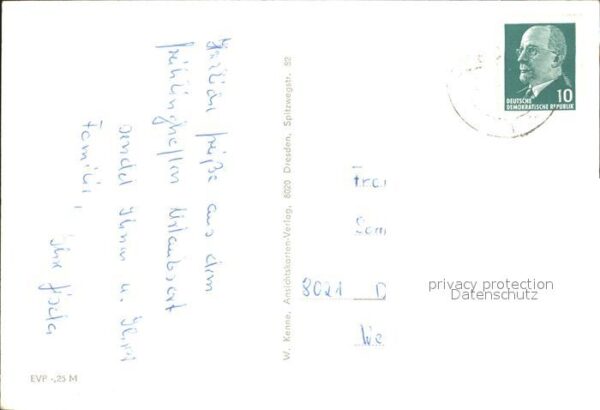 Herzliche Grüße aus dem
frühlinghaften Urlaubsort
sendet Ihnen u. Ihrer
Familie,
Ihre
W. Kenne, Ansichtskarten-Verlag, 8020 Dresden, Spitzwegstr. 52
DEUTSCHE
DEMOKRATISCHE REPUBLIK
10
Frau
8021 D
We
privacy protection
Datenschutz
EVP -,25 M